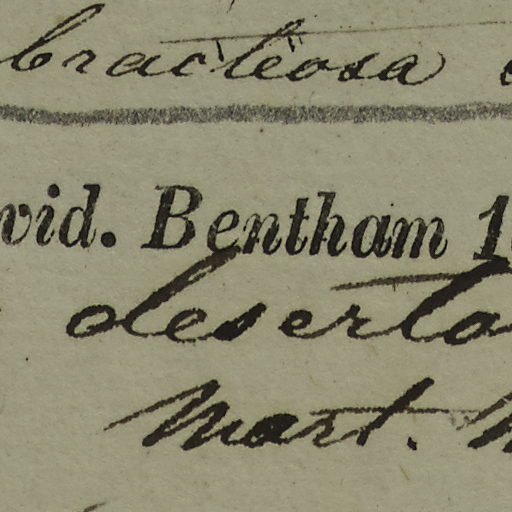 bracteosa
vid. Bentham 1
deserto
Mart.